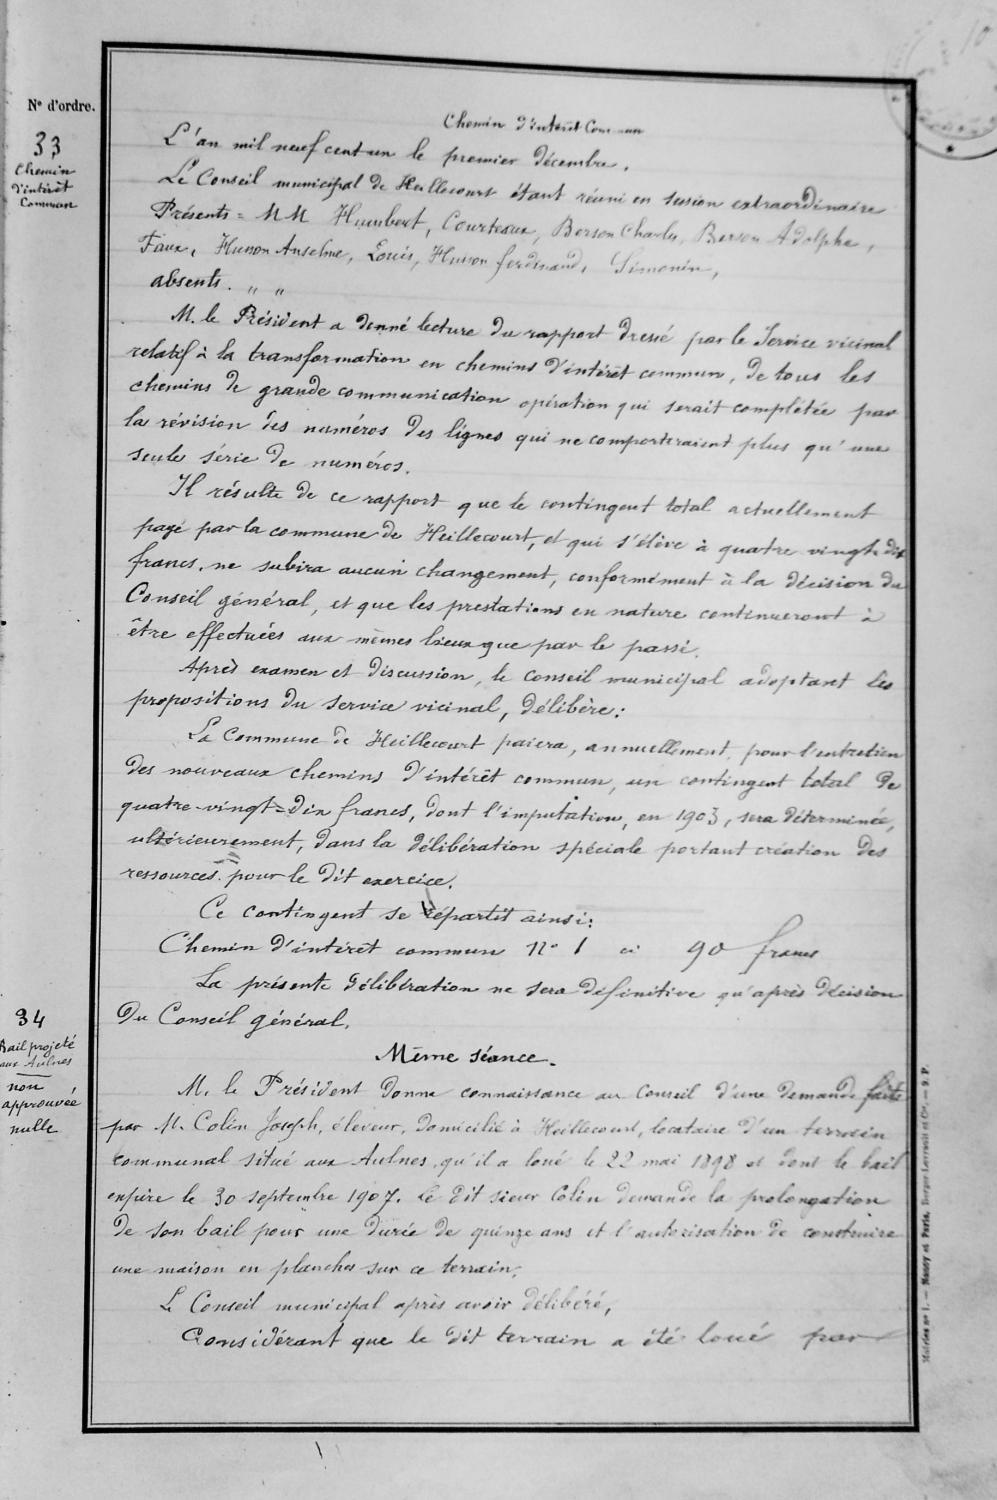 10
N° d'ordre.
33
Chemin
d'intérêt
Commun
Chemin d'intérêt Commun
L'an mil neuf cent un le premier décembre.
Le Conseil municipal de Heillecourt étant réuni en session extraordinaire
Présents = MM Humbert, Courteaux, Berson Charles, Berson Adolphe,
Faux, Husson Anselme, Louis, Husson ferdinand, Simonin,
absents. " "
M. le Président a donné lecture du rapport dressé par le Service vicinal
relatif à la transformation en chemins d'intérêt commun, de tous les
chemins de grande communication opération qui serait complétée par
la révision des numéros des lignes qui ne comporteraient plus qu'une
seule série de numéros.
Il résulte de ce rapport que le contingent total actuellement
payé par la commune de Heillecourt, et qui s'élève à quatre vingt dix
francs. ne subira aucun changement, conformément à la décision du
Conseil général, et que les prestations en nature continueront à
être effectuées aux mêmes lieux que par le passé.
Après examen et discussion, le conseil municipal adoptant les
propositions du service vicinal, délibère:
La Commune de Heillecourt paiera, annuellement, pour l'entretien
des nouveaux chemins d'intérêt commun, un contingent total de
quatre-vingt-dix francs, dont l'imputation, en 1903, sera déterminée,
ultérieurement, dans la délibération spéciale portant création des
ressources pour le dit exercice.
Ce contingent se répartit ainsi:
Chemin d'intérêt commun N° 1 ci 90 francs
La présente délibération ne sera définitive qu'après décision
du Conseil général.
34
Bail projeté
aux Aulnes
non
approuvée
nulle
Même séance.
M. le Président donne connaissance au Conseil d'une demande faite
par M. Colin Joseph, éleveur, domicilié à Heillecourt, locataire d'un terrain
communal situé aux Aulnes, qu'il a loué le 22 mai 1898 et dont le bail
expire le 30 septembre 1907. Le dit sieur Colin demande la prolongation
de son bail pour une durée de quinze ans et l'autorisation de construire
une maison en planches sur ce terrain.
Le Conseil municipal après avoir délibéré,
Considérant que le dit terrain a été loué par